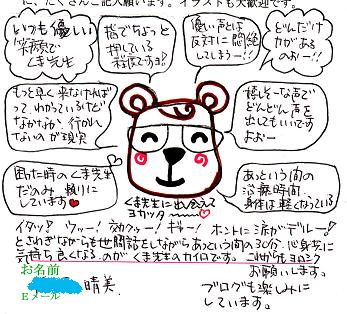 に、たくさんご記入願います。イラストも大歓迎です。
いつも優しい
笑顔で
くま先生
指でちょっと
押している
程度ですョ?
優しい声とは
反対に悶絶
してしまうー!!
どんだけ
力がある
のおー!!
もっと早く来なければ
って、わかっているけど
なかなか行かれ
ないのが現実
嬉しそーな声で
どんどん声を
出してもいいです
よおー
困った時のくま先生
だのみ 頼りに
しています
あっという間の
治療時間
身体は軽くなっている
くま先生に出会えて
ヨカッター
イタッ! ウァー! 効クゥー! ギャー! ホントに涙がデルー!
とさわぎながらも世間話をしながらあっという間の30分。心身共に
気持ち良くなるのがくま先生のカイロです。これからもヨロシク
お願いします。
お名前
晴美
Eメール
ブログも楽しみに
しています。